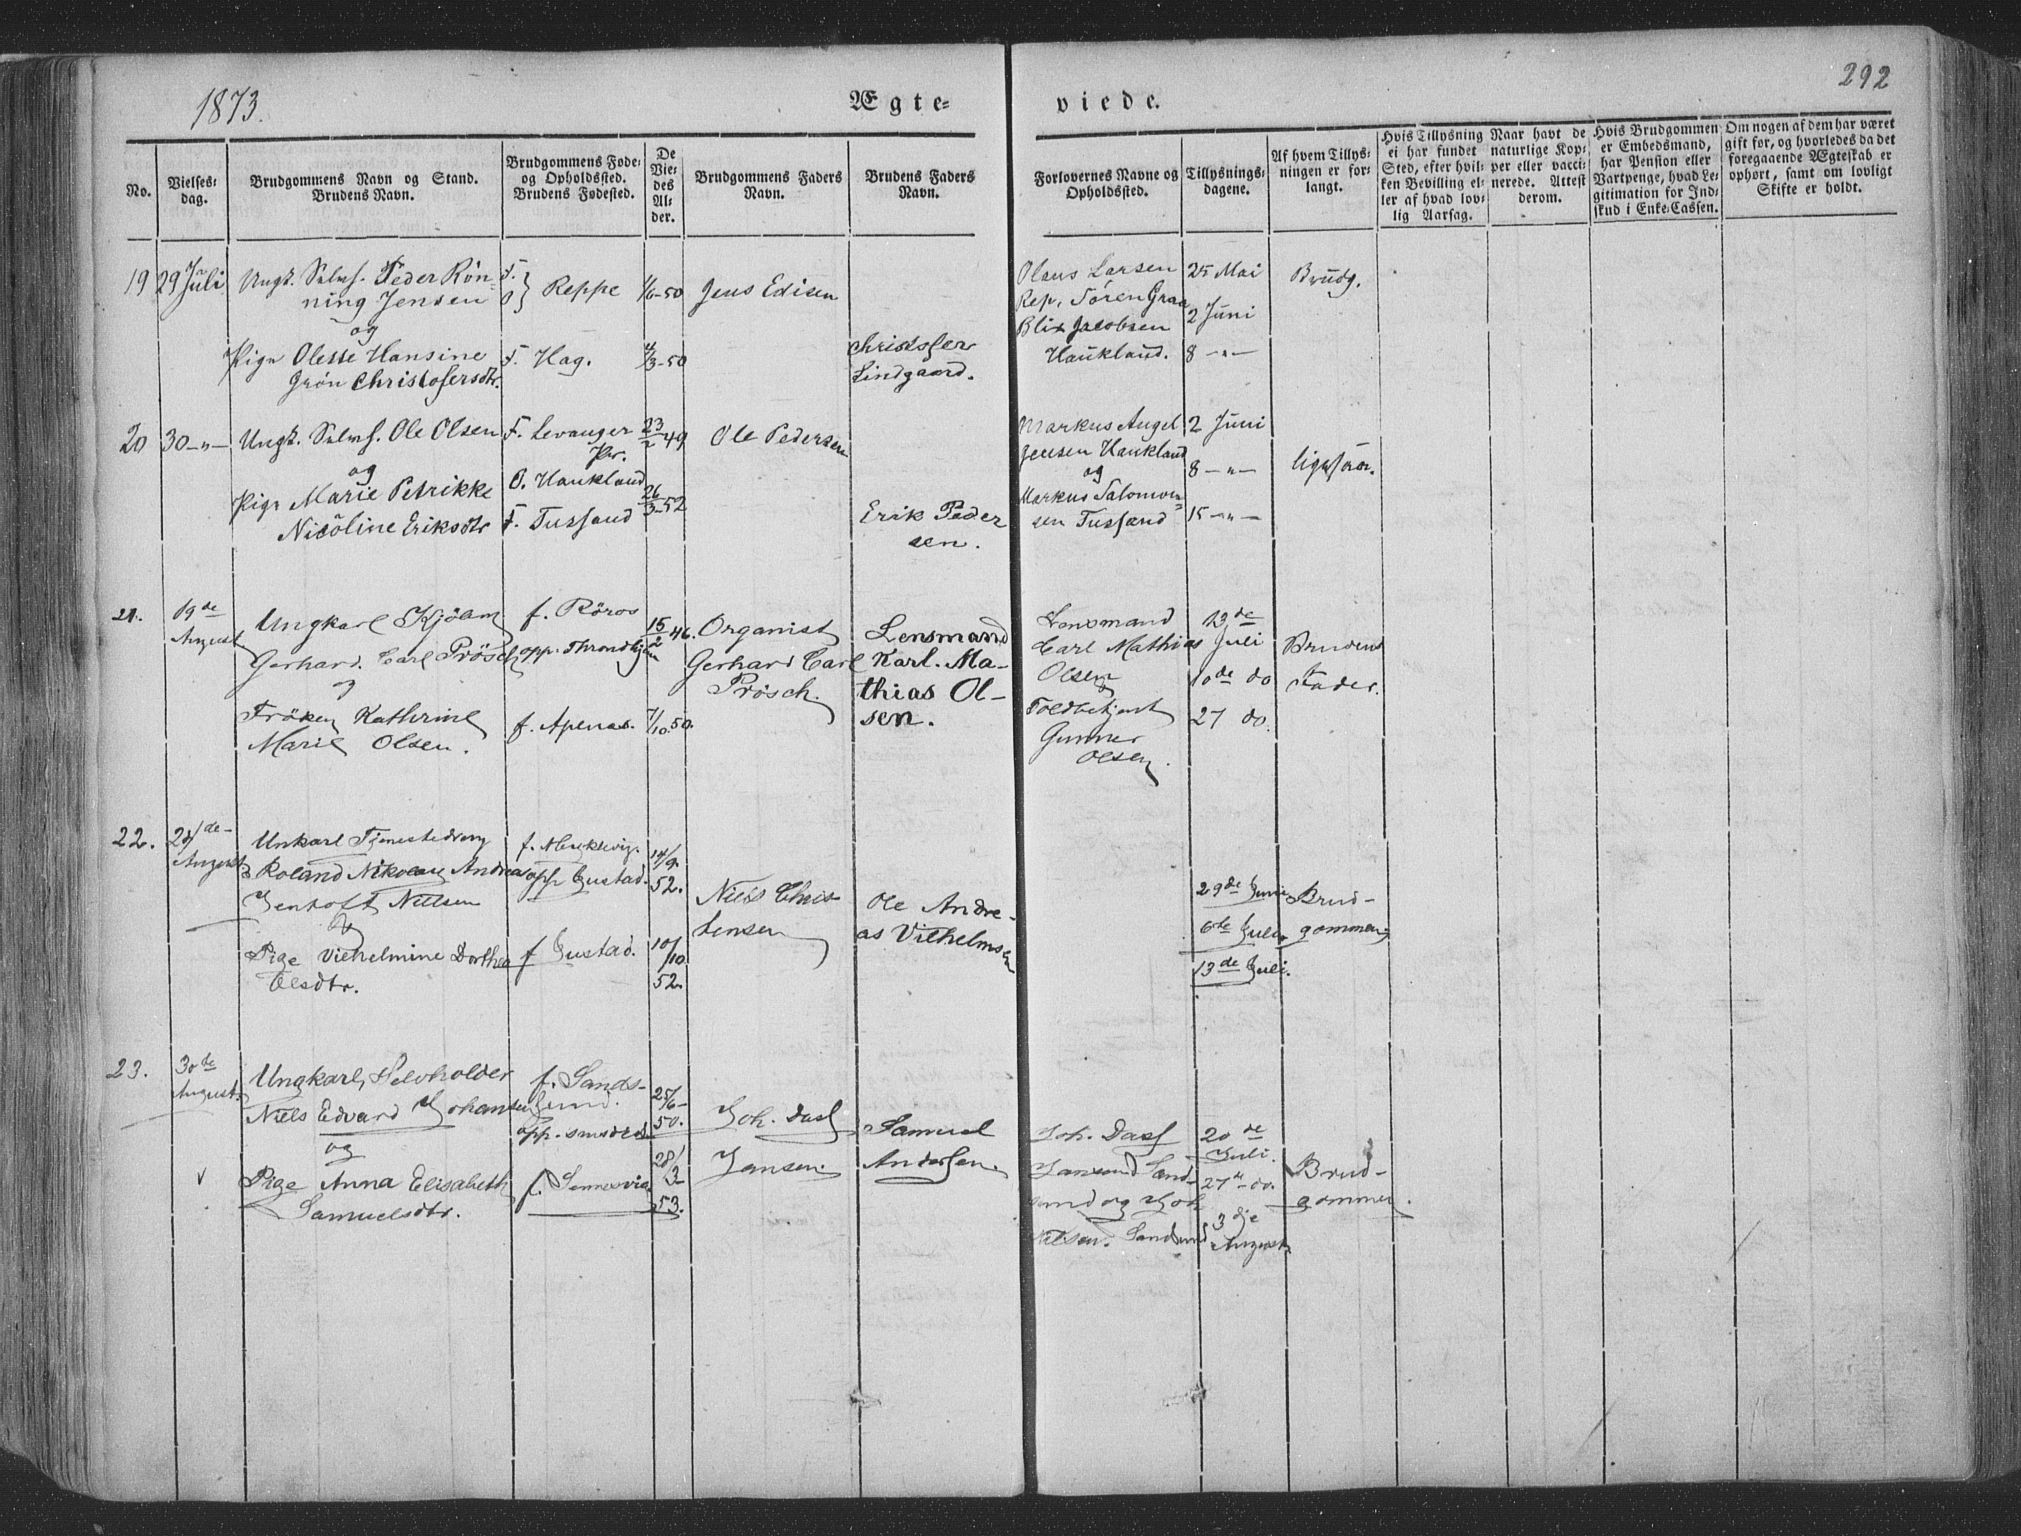 1873.
Ægte-
viede.
292
No.
Vielses-
dag.
Brudgommens Navn og Stand.
Brudens Navn.
Brudgommens Føde-
og Opholdssted.
Brudens Fødested.
De
Vie-
des
Al-
der.
Brudgommens Faders
Navn.
Brudens Faders
Navn.
Forlovernes Navne og
Opholdssted.
Tillysnings-
dagene.
Af hvem Tillys-
ningen er for-
langt.
Hvis Tillysning
ei har fundet
Sted, efter hvil-
ken Bevilling el-
ler af hvad lov-
lig Aarsag.
Naar havt de
naturlige Kop-
per eller vacci-
nerede. Attest
derom.
Hvis Brudgommen
er Embedsmand,
har Pension eller
Vartpenge, hvad Le-
gitimation for Ind-
skud i Enke-Cassen.
Om nogen af dem har været
gift før, og hvorledes da det
foregaaende Ægteskab er
ophørt, samt om lovligt
Skifte er holdt.
19
29 Juli
Ungk. Selvs. Peder Røn-
ning Jensen
og
Pige Olette Hansine
Grøn Christofersdtr.
F.
O } Reppe
F. Hag.
1/6-50
4/3-50
Jens Edisen
Christofer
Lindgaard.
Olaus Larsen
Rep, Søren Graa
Blix Jacobsen
Haukland.
25 Mai
2 Juni
8 -"-
Brudg.
20
30 -"-
Ungk. Selvs. Ole Olsen
og
Pige Marie Petrikke
Nicoline Eriksdtr
F. Levanger
Pr.
O. Haukland
F. Tussand
23/2 49
26/3-52
Ole Pedersen
Erik Peder
sen.
Markus Angel
Jensen Haukland
og
Markus Salomon-
sen Tussand
2 Juni
8 -"-
15 -"-
ligesaa.
21.
19de
August
Ungkarl Kjølam
Gerhard Carl Prösch
og
Fröken Kathrine
Marie Olsen.
f. Röros
opp. Throndhjem
f. Apenæs.
15/2 46.
7/10.50.
Organist
Gerhard Carl
Prösch.
Lensmand
Karl. Ma-
thias Ol-
sen.
Lensmand
Carl Mathias
Olsen
&
Toldbetjent
Gunner
Olsen.
13de
Juli
20de do
27 do.
Brudens
Fader.
22.
August
Unkarl Tjenestedreng
Roland Nikolai Andreas
Jentoft Nielsen
&
Pige Vilhelmine Dorthea
Olsdtr.
opp Gustad.
f Gustad.
14/9.
52.
10/10
52.
Niels Chris
tensen
Ole Andre-
as Vilhelmsen
29de Juni
6te Juli
13de Juli.
Brud-
gommen
23.
30de
August
Ungkarl, Selvholder
Niels Edvard Johansen
og
Pige Anna Elisabeth
Samuelsdtr.
f. Sands-
und.
opp.
f.
25/6-
50.
28/3
53.
Joh. Dass
Jansen.
Samuel
Andersen.
Joh. Dass
Jansen Sand-
sund og Joh
Nilsen. Sandsund
20de
Juli.
27de do.
3dje
August
Brud-
gommen.